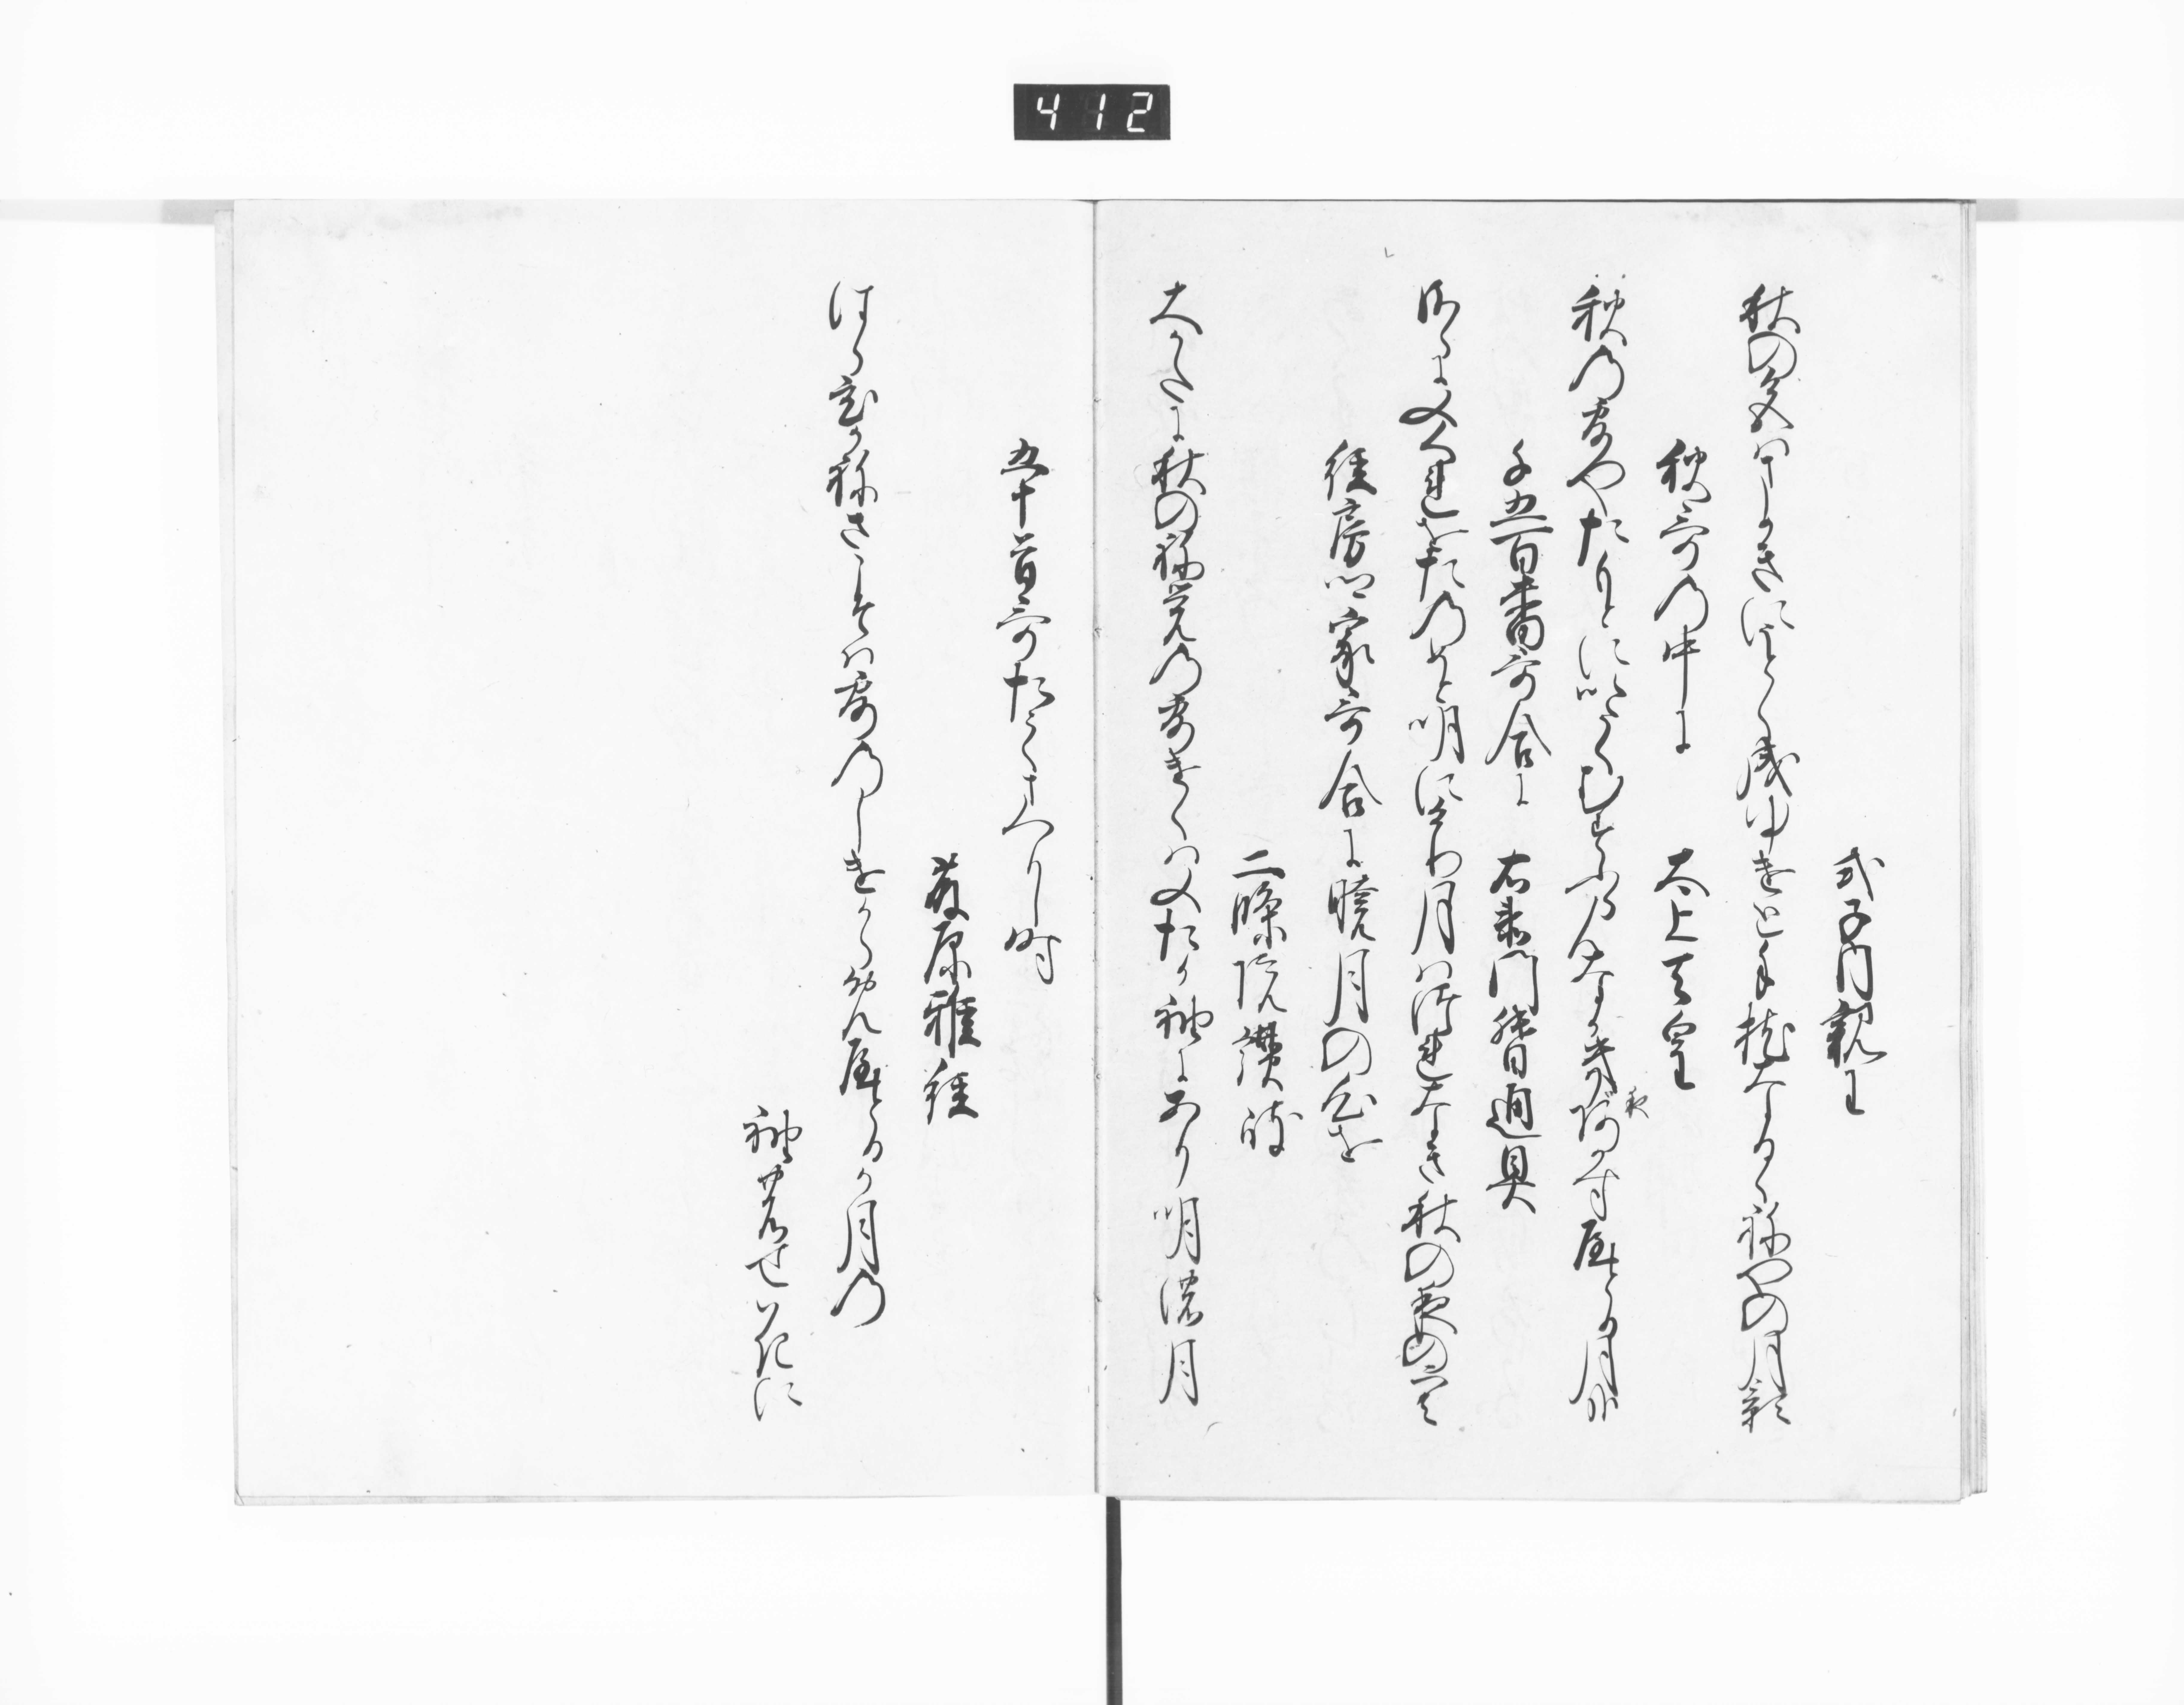 412
式子内親王
秋の色はまかきにうとく成ゆけと手枕なるゝねやの月影
秋哥の中に　太上天皇
秋の露やたもとにいたくむすふらんなかき夜あかす屋とる月哉
千五百番哥合に　右衛門督通具
佐らに又くれをたのめと明にけり月はつれなき秋の夜の空
経房卿家哥合に暁月の心を
二條院讃岐
大かたに秋の祢覚の露けくは又たか袖にあり明濃月
五十首哥たてまつりし時
藤原雅経
はらひかねさこそは露のしけからめ屋とるか月の
袖のせはきに